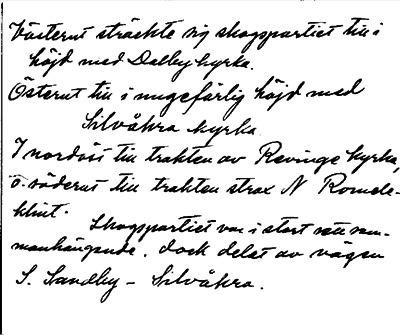 Västerut sträckte sig skogspartiet till i
höjd med Dalby kyrka.
Österut till i ungefärlig höjd med
Silvåkra kyrka
I nordöst till trakten av Revinge kyrka,
o. söderut till trakten strax N Romele-
klint.
Skogspartiet var i stort sett sam-
manhängande, dock delat av vägen
S. Sandby - Silvåkra.